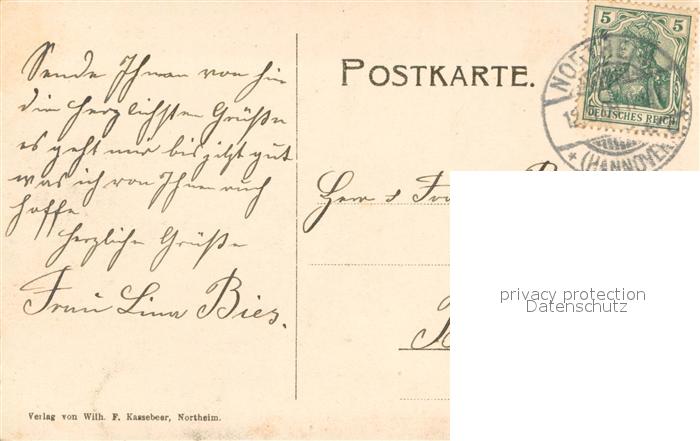 Sende Ihnen von hier
die herzlichsten Grüße
es geht mir bis jetzt gut
was ich von Ihnen auch
hoffe
herzliche Grüße
Frau Lina Bies.
Verlag von Wilh. F. Kassebeer, Northeim.
POSTKARTE.
5 5
DEUTSCHES REICH
NORTHEIM
12
* (HANNOVER)
Herr &
privacy protection
Datenschutz